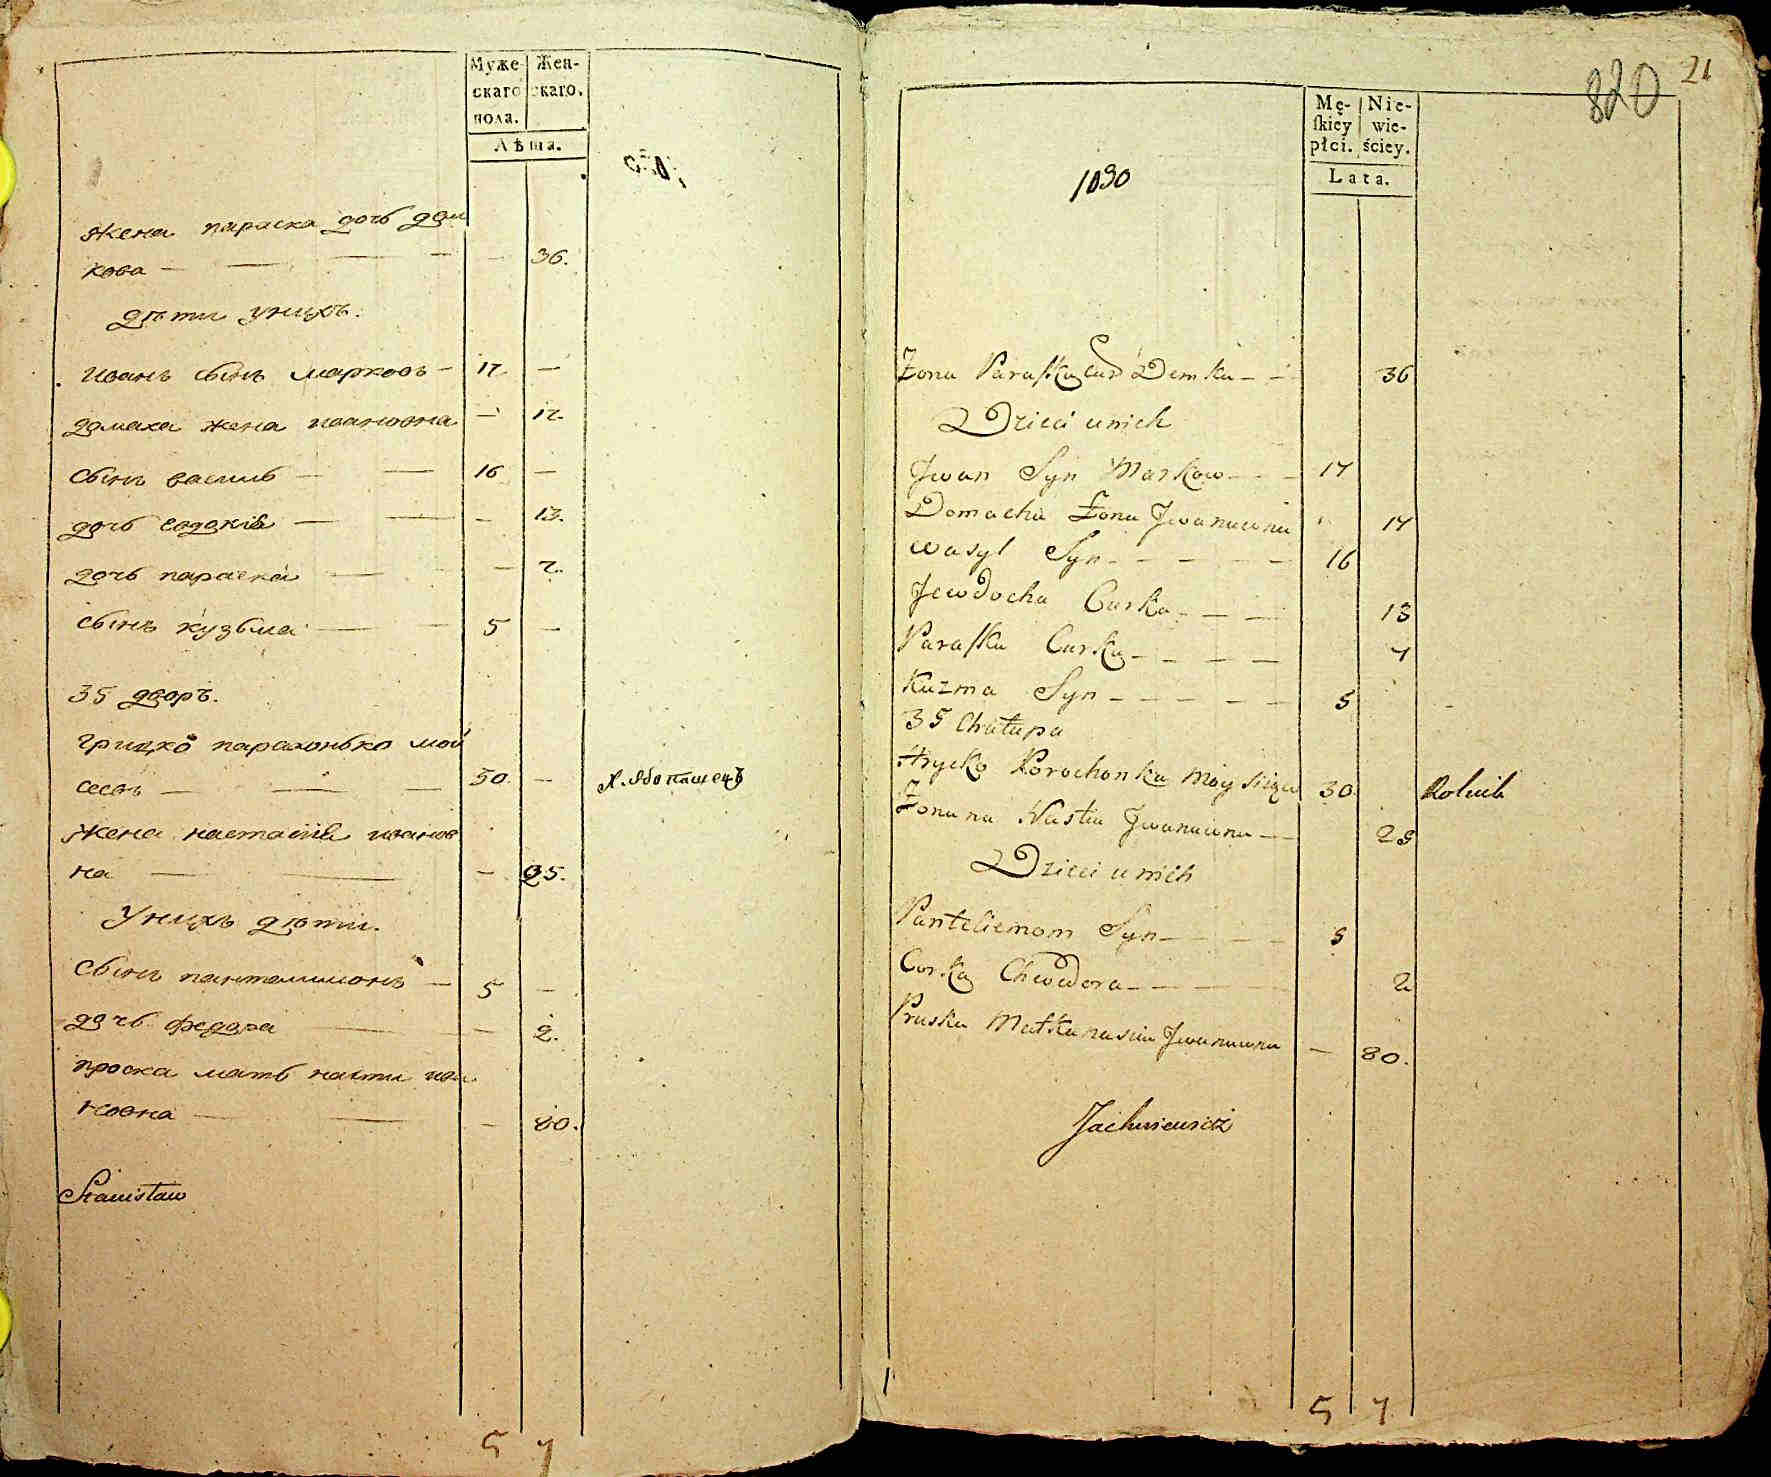 Муже- Жен-
скаго скаго.
пола.
Лѣта.
жена параска дочь дем
кова — — — — — 36.
дѣти унихъ.
иванъ сынъ марковъ — 17 —
домаха жена ивановна — 17.
сынъ василь — — 16 —
дочь евдокіѣ — — — 13.
дочь параска — — 7.
сынъ кузьма — — 5 —
35 дворъ.
грицко парахонько мой
сеевъ — — — 30. —
жена настасіѣ иванов
на — — — 25.
унихъ дѣти.
сынъ пантелимонъ — 5 —
дочь федора — — 2.
проска мать насти ива
новна — — — 80.
Stanisław
5 7
820 21
1090
Mę- Nie-
ſkiey wie-
płci. ściey.
Lata.
Żona Paraſka Cur Demka — — 36
Dzieci unich
Jwan Syn Markow — — — 17
Domacha Żona Jwanuwna 17
Wasyl Syn — — — — — 16
Jewdocha Curka — — — 13
Paraſka Curka — — — — 7
Kuzma Syn — — — — — 5
35 Chałupa
Hrycko Porochonka 30 Rolnik
Żona na Nastia Jwanuwna — 25
Dzieci unich
Panteliemom Syn — — — 5
Corka Chwedora — — — — 2
Pruska Matka nasti Jwanuwna — 80.
Jachniewicz
5 7